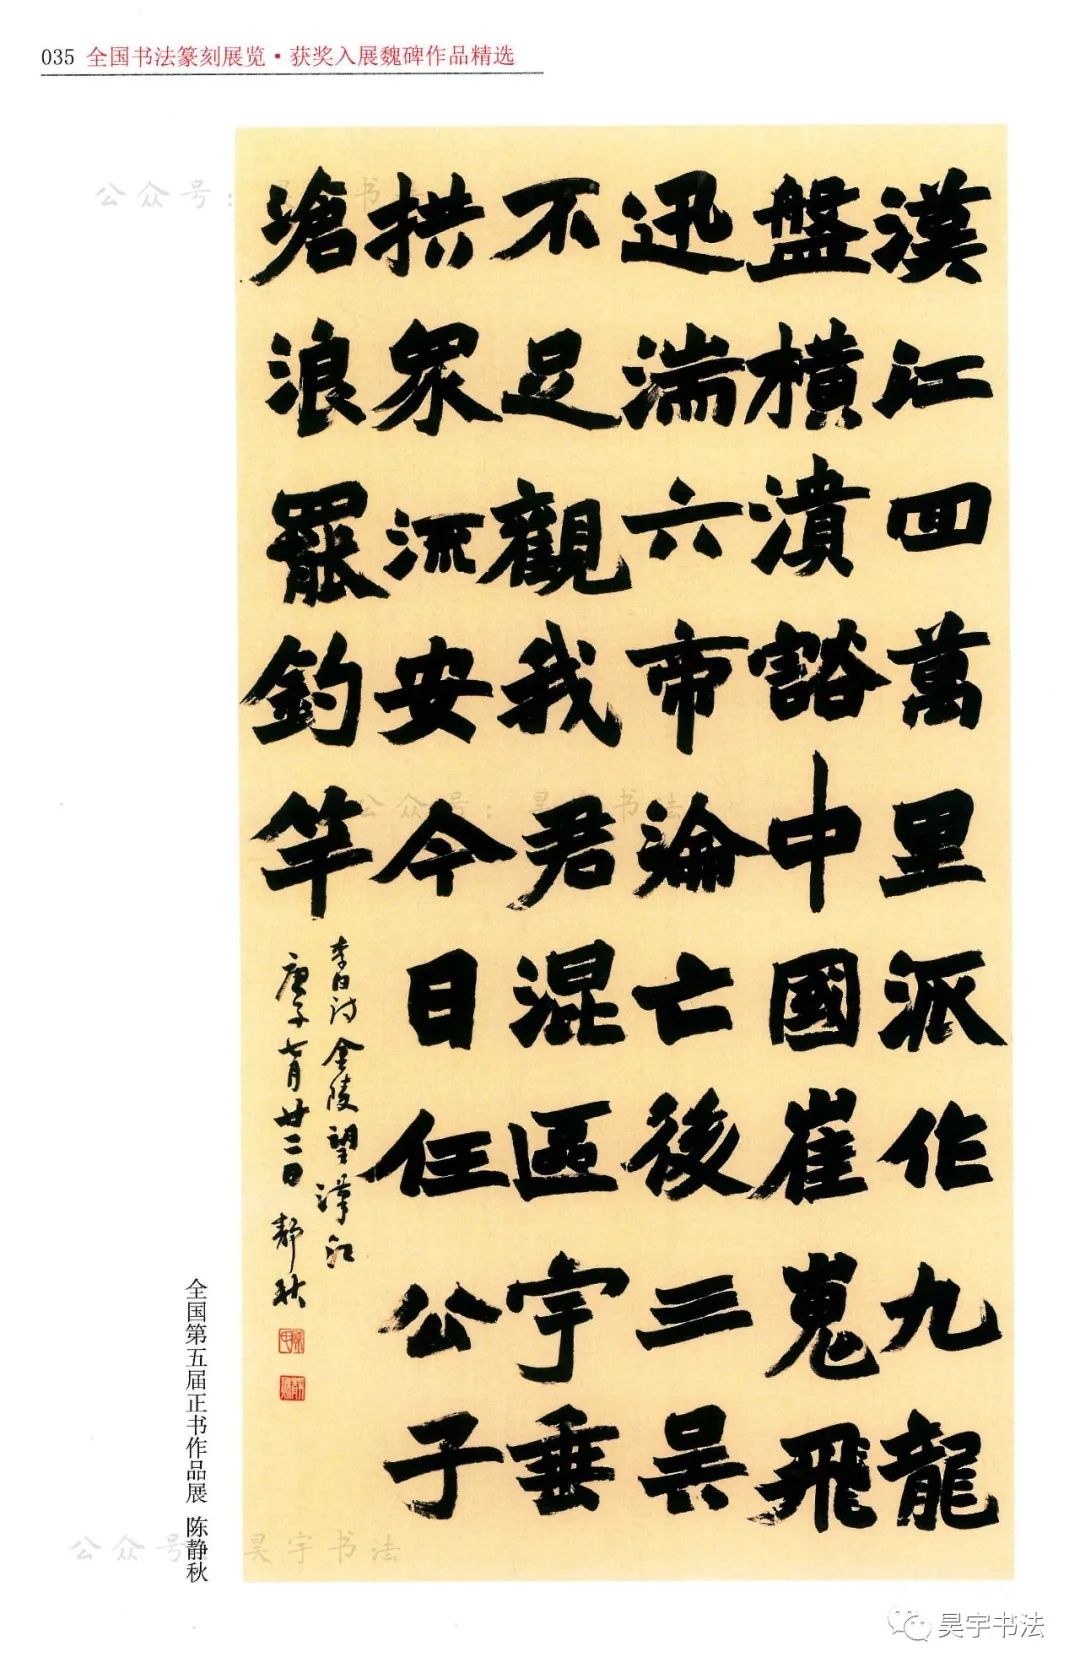 035 全国书法篆刻展览·获奖入展魏碑作品精选
漢江回萬里派作九龍
盤橫潰豁中國崔嵬飛
迅湍六帝淪亡後三吳
不足觀我君混區宇垂
拱眾流安今日任公子
滄浪罷釣竿
李白诗金陵望漢江
庚子七月廿二日 靜秋
全国第五届正书作品展 陈静秋
公众号：昊宇书法
公众号：昊宇书法
公众号：昊宇书法
昊宇书法